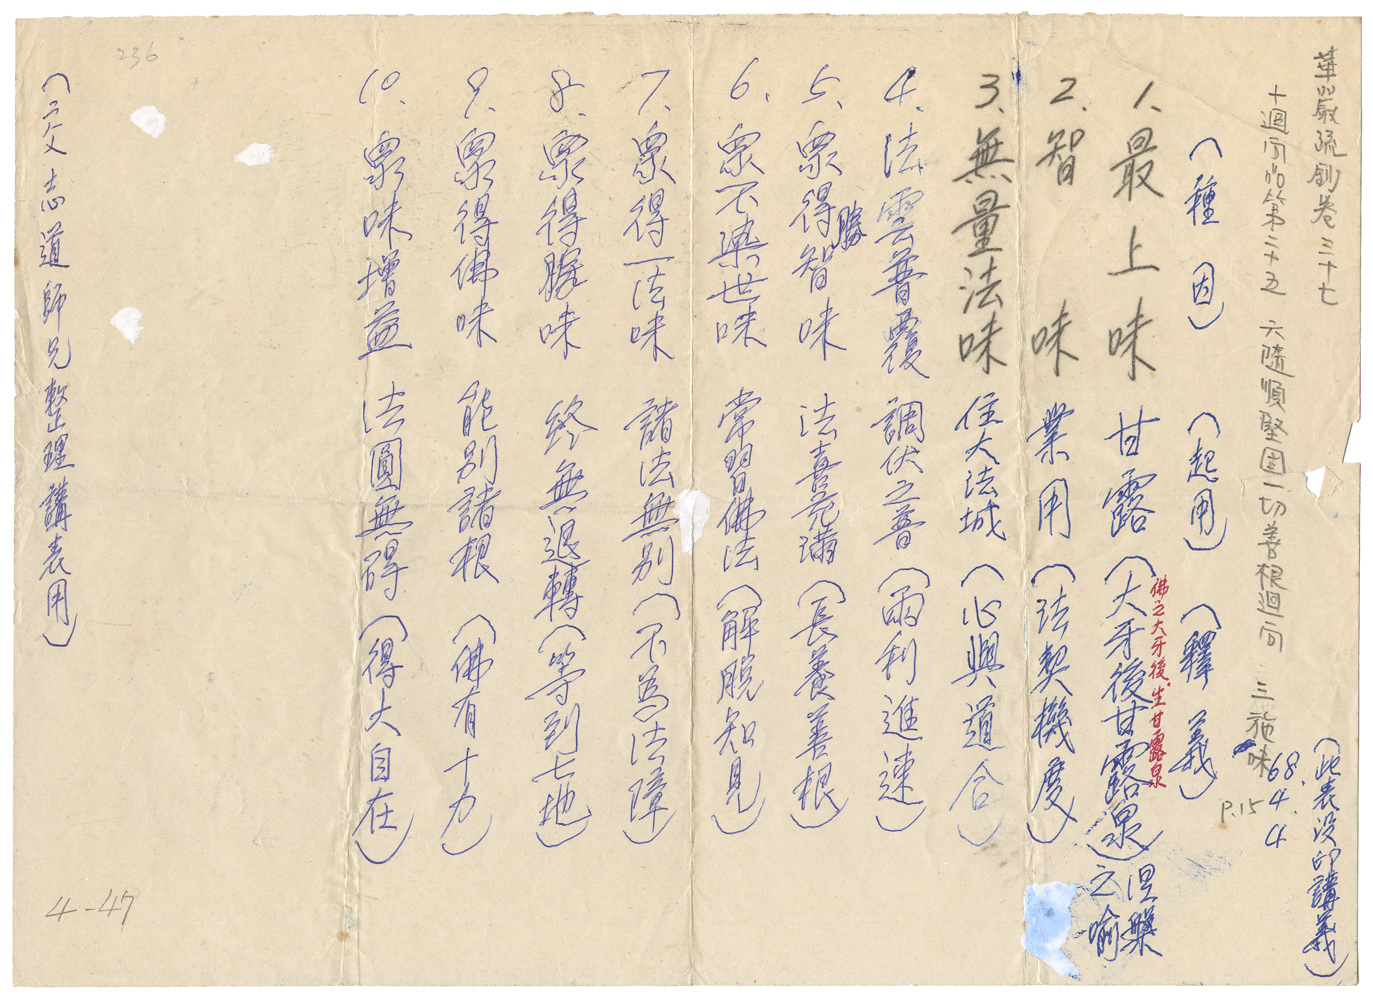 華嚴疏鈔卷三十七
(此表沒印講義)
十迴向品第二十五 六隨順堅固一切善根迴向 三施味
68. 4. 4
P.15
(種因) (起用) (釋義)
1. 最上味 甘露 (大牙後甘露泉) 涅槃之喻
佛之大牙後、生甘露泉
2. 智味 業用 (法契機度)
3. 無量法味 住大法城 (心與道合)
4. 法雲普覆 調伏之普 (雨利進速)
5. 眾得勝智味 法喜充滿 (長養善根)
6. 眾不染世味 常習佛法 (解脫知見)
7. 眾得一法味 諸法無別 (不為法障)
8. 眾得勝味 終無退轉 (等到七地)
9. 眾得佛味 能別諸根 (佛有十力)
10. 眾味增益 法圓無碍 (得大自在)
236
(交志道師兄整理講表用)
4-47